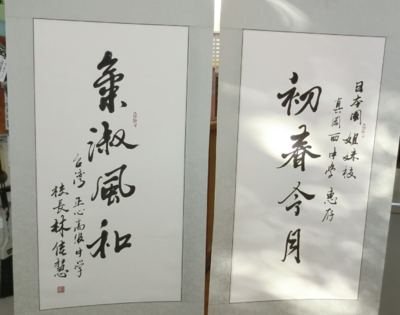 日本國 姐妹校
真岡西中學 惠存
初春令月
氣淑風和
台灣 正心高級中学
校長 林佳慧